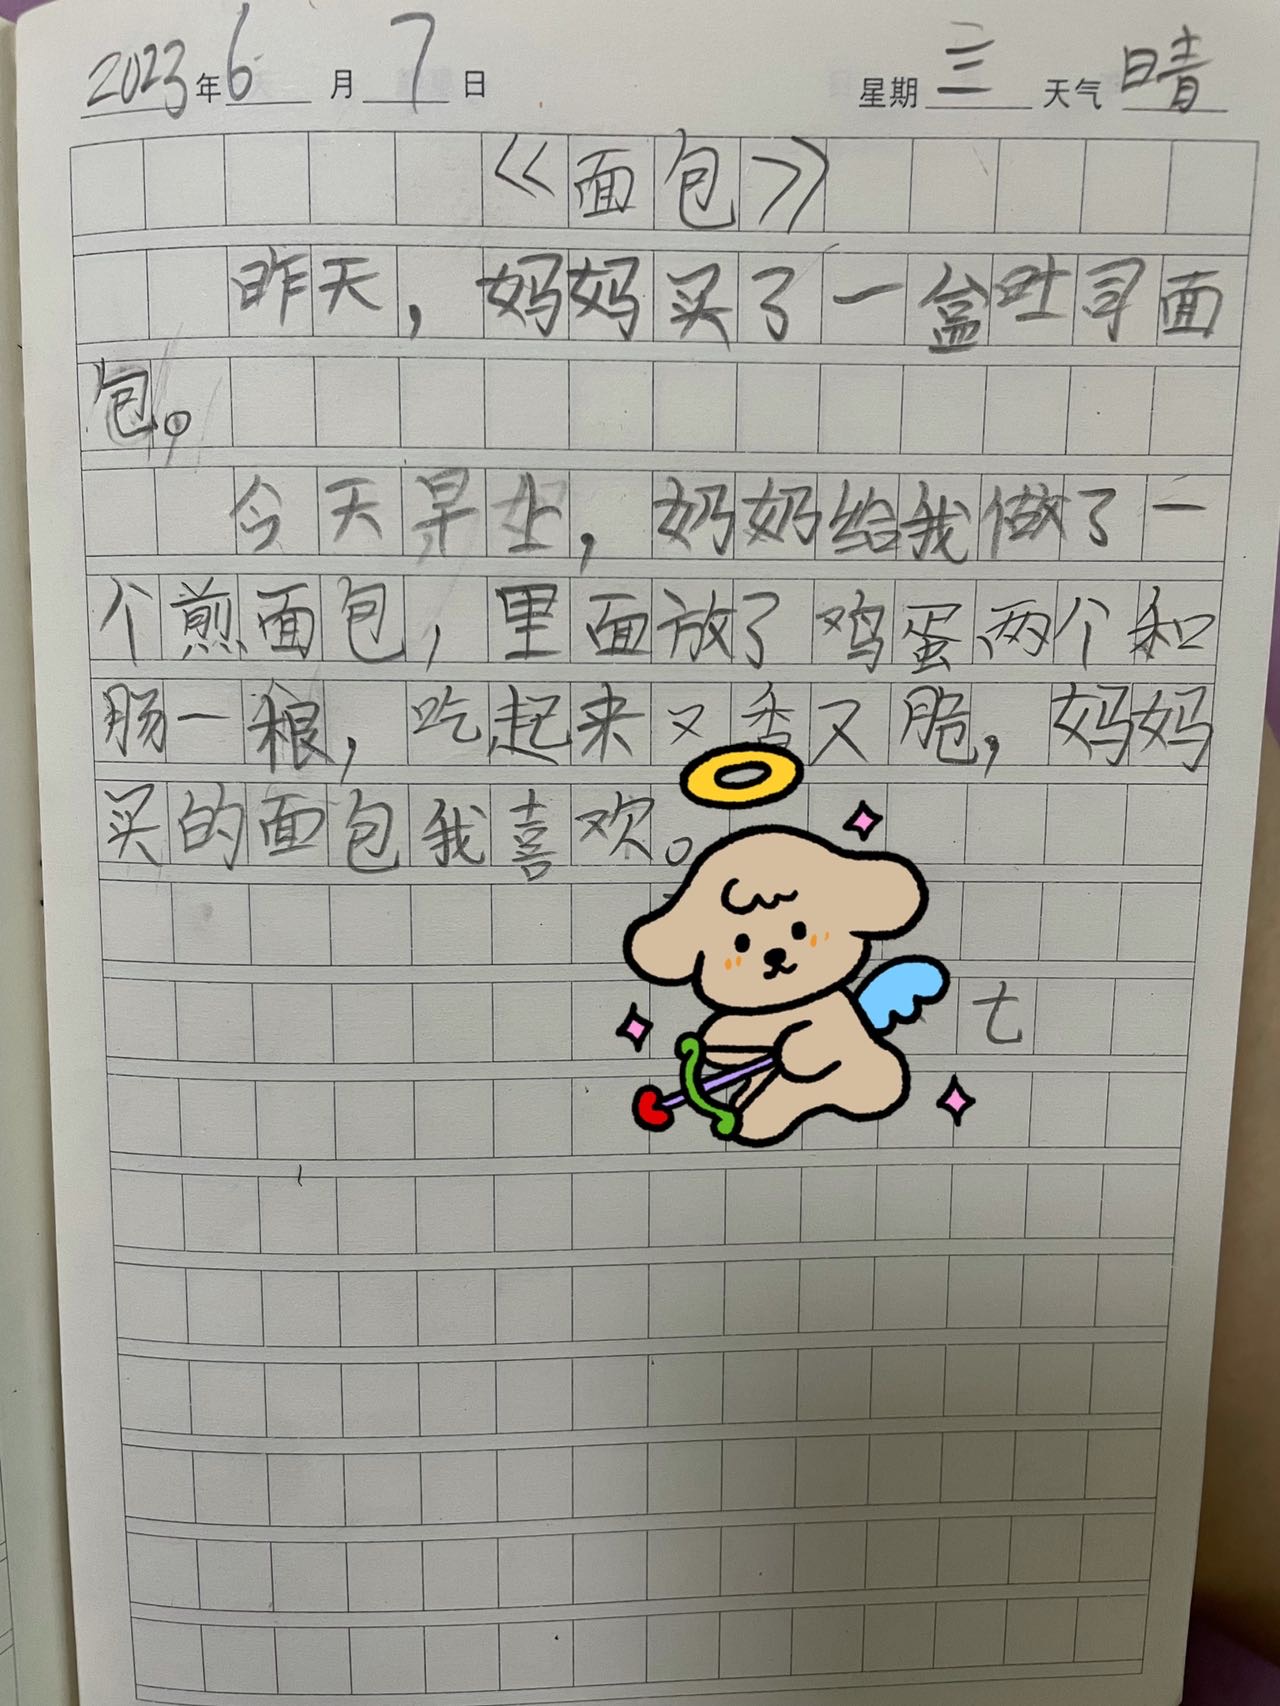 2023年6月7日 星期三 天气晴
《面包》
昨天，妈妈买了一盒吐司面
包。
今天早上，奶奶给我做了一
个煎面包，里面放了鸡蛋两个和
肠一根，吃起来又香又脆，妈妈
买的面包我喜欢。
七